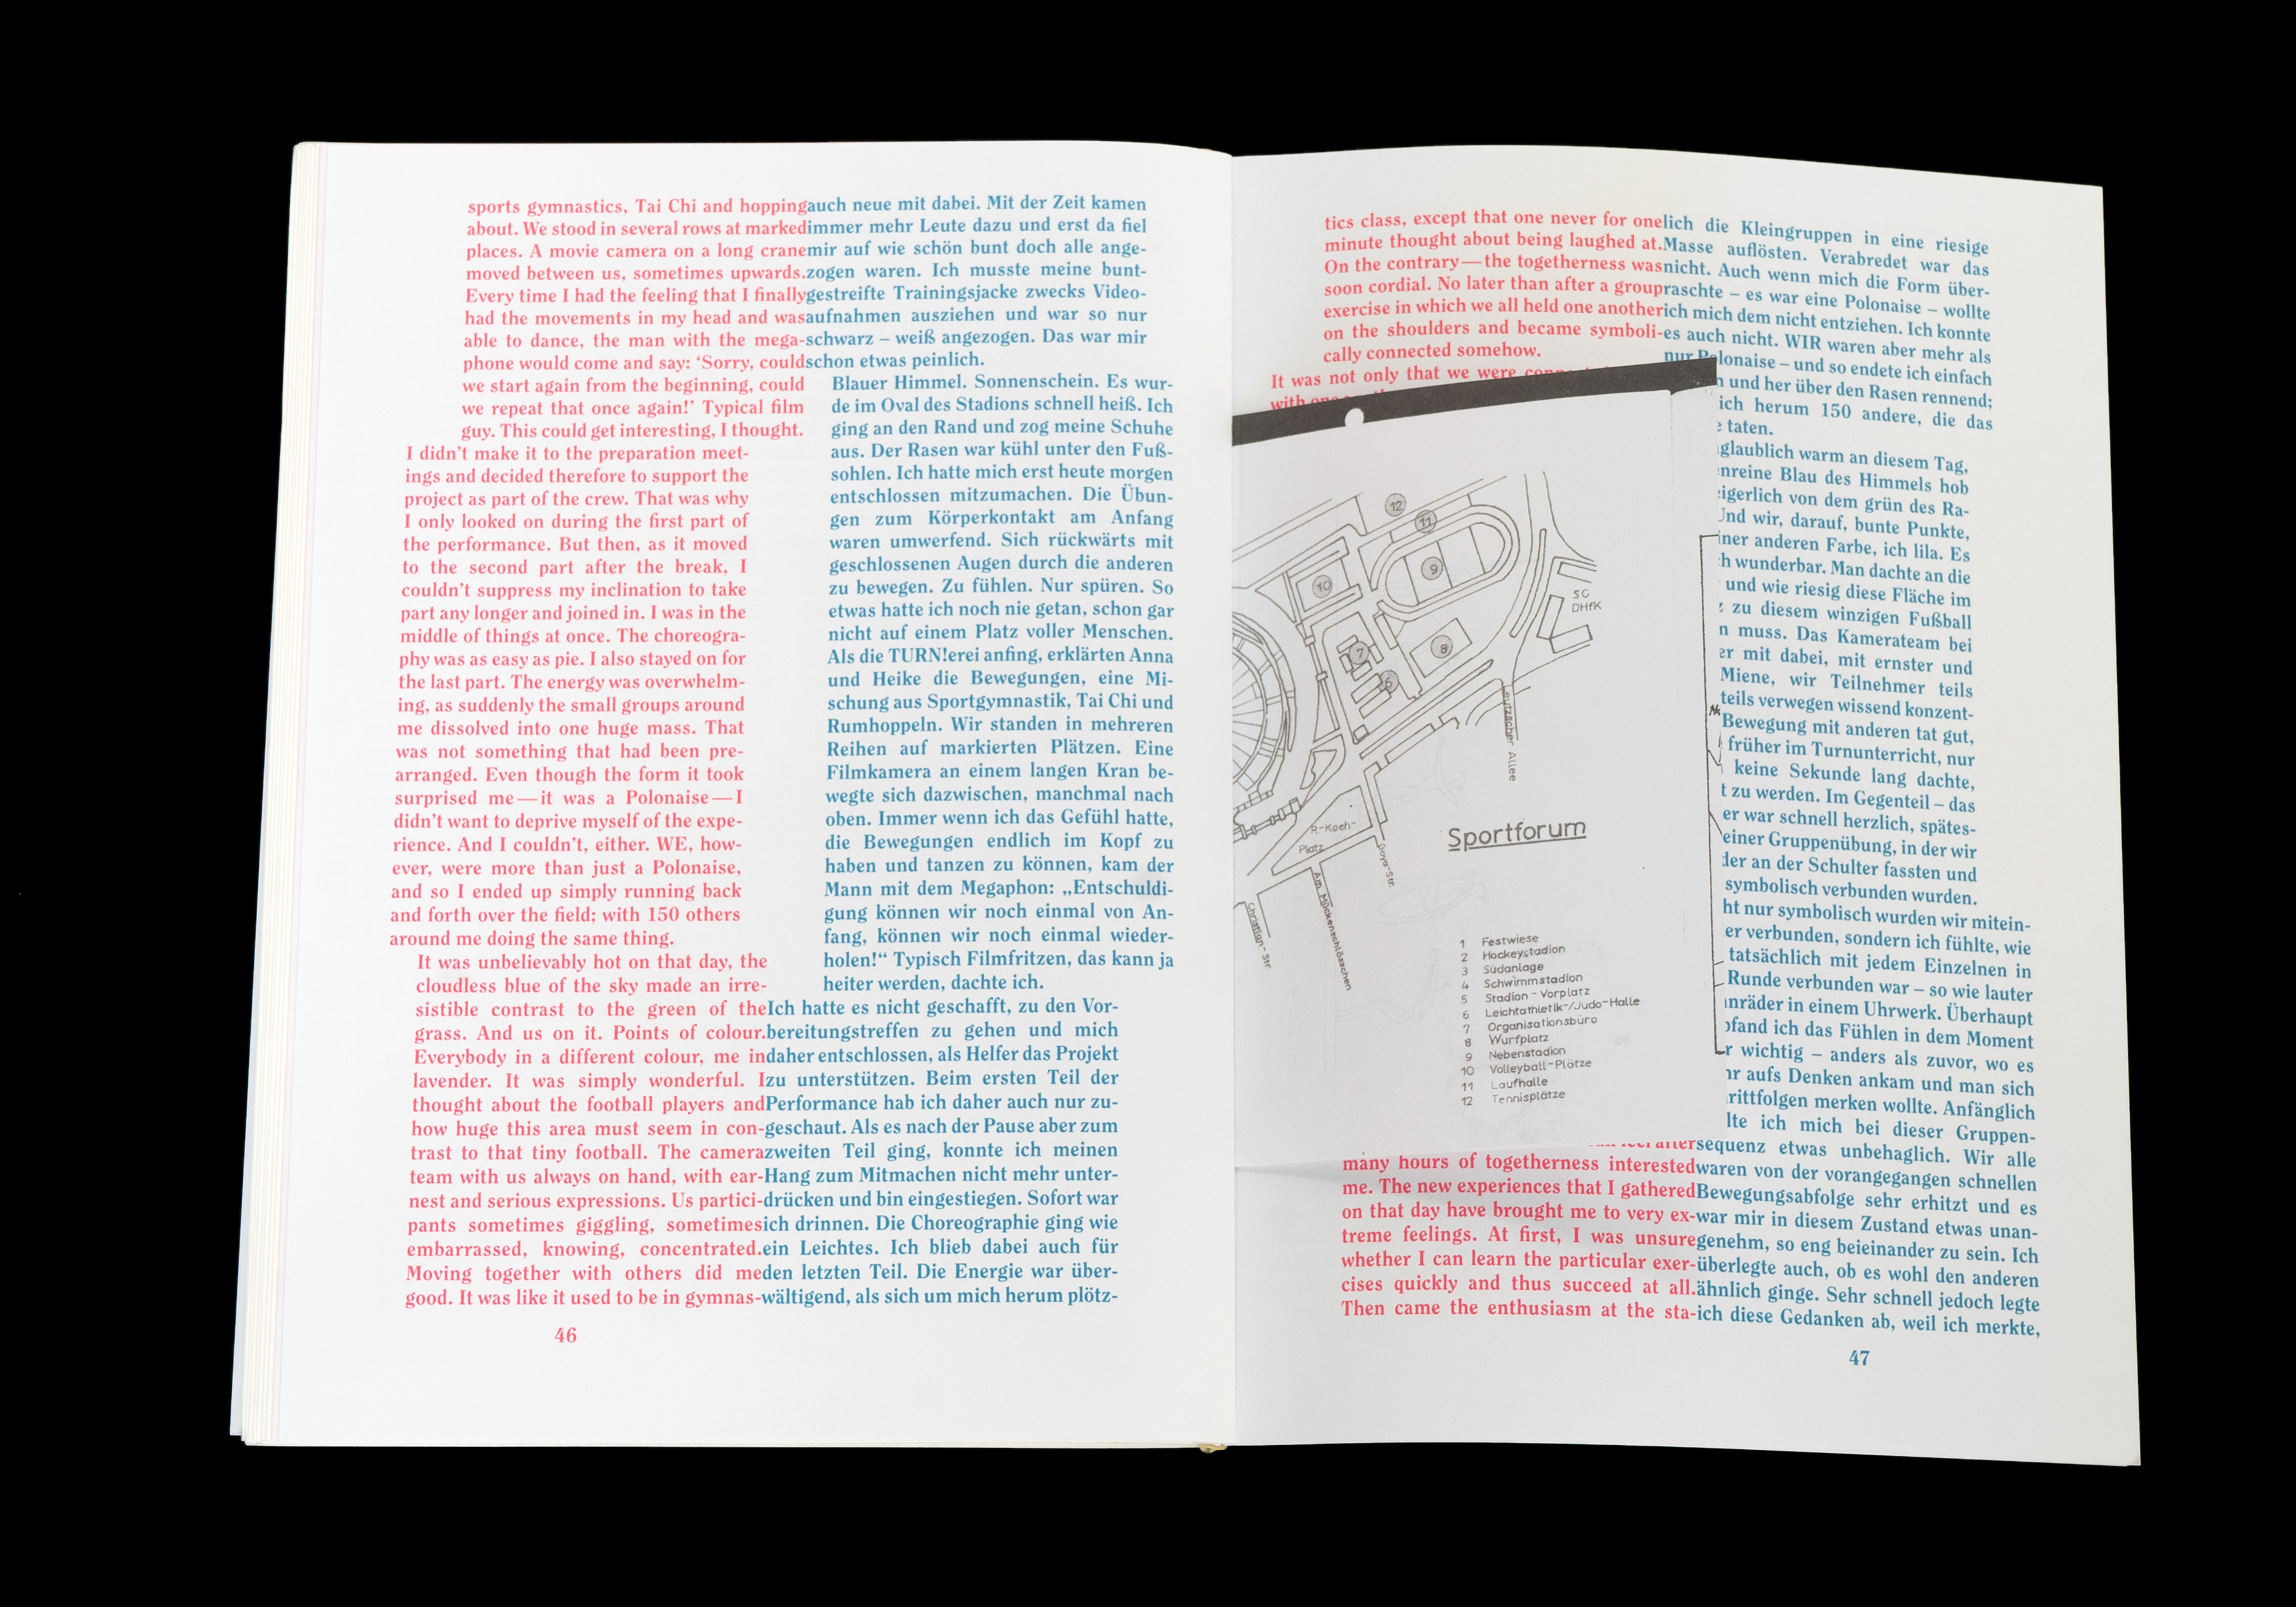 sports gymnastics, Tai Chi and hopping
about. We stood in several rows at marked
places. A movie camera on a long crane
moved between us, sometimes upwards.
Every time I had the feeling that I finally
had the movements in my head and was
able to dance, the man with the mega-
phone would come and say: ‘Sorry, could
we start again from the beginning, could
we repeat that once again!’ Typical film
guy. This could get interesting, I thought.
I didn’t make it to the preparation meet-
ings and decided therefore to support the
project as part of the crew. That was why
I only looked on during the first part of
the performance. But then, as it moved
to the second part after the break, I
couldn’t suppress my inclination to take
part any longer and joined in. I was in the
middle of things at once. The choreogra-
phy was as easy as pie. I also stayed on for
the last part. The energy was overwhelm-
ing, as suddenly the small groups around
me dissolved into one huge mass. That
was not something that had been pre-
arranged. Even though the form it took
surprised me — it was a Polonaise — I
didn’t want to deprive myself of the expe-
rience. And I couldn’t, either. WE, how-
ever, were more than just a Polonaise,
and so I ended up simply running back
and forth over the field; with 150 others
around me doing the same thing.
It was unbelievably hot on that day, the
cloudless blue of the sky made an irre-
sistible contrast to the green of the
grass. And us on it. Points of colour.
Everybody in a different colour, me in
lavender. It was simply wonderful. I
thought about the football players and
how huge this area must seem in con-
trast to that tiny football. The camera
team with us always on hand, with ear-
nest and serious expressions. Us partici-
pants sometimes giggling, sometimes
embarrassed, knowing, concentrated.
Moving together with others did me
good. It was like it used to be in gymnas-
46
auch neue mit dabei. Mit der Zeit kamen
immer mehr Leute dazu und erst da fiel
mir auf wie schön bunt doch alle ange-
zogen waren. Ich musste meine bunt-
gestreifte Trainingsjacke zwecks Video-
aufnahmen ausziehen und war so nur
schwarz – weiß angezogen. Das war mir
schon etwas peinlich.
Blauer Himmel. Sonnenschein. Es wur-
de im Oval des Stadions schnell heiß. Ich
ging an den Rand und zog meine Schuhe
aus. Der Rasen war kühl unter den Fuß-
sohlen. Ich hatte mich erst heute morgen
entschlossen mitzumachen. Die Übun-
gen zum Körperkontakt am Anfang
waren umwerfend. Sich rückwärts mit
geschlossenen Augen durch die anderen
zu bewegen. Zu fühlen. Nur spüren. So
etwas hatte ich noch nie getan, schon gar
nicht auf einem Platz voller Menschen.
Als die TURN!erei anfing, erklärten Anna
und Heike die Bewegungen, eine Mi-
schung aus Sportgymnastik, Tai Chi und
Rumhoppeln. Wir standen in mehreren
Reihen auf markierten Plätzen. Eine
Filmkamera an einem langen Kran be-
wegte sich dazwischen, manchmal nach
oben. Immer wenn ich das Gefühl hatte,
die Bewegungen endlich im Kopf zu
haben und tanzen zu können, kam der
Mann mit dem Megaphon: „Entschuldi-
gung können wir noch einmal von An-
fang, können wir noch einmal wieder-
holen!“ Typisch Filmfritzen, das kann ja
heiter werden, dachte ich.
Ich hatte es nicht geschafft, zu den Vor-
bereitungstreffen zu gehen und mich
daher entschlossen, als Helfer das Projekt
zu unterstützen. Beim ersten Teil der
Performance hab ich daher auch nur zu-
geschaut. Als es nach der Pause aber zum
zweiten Teil ging, konnte ich meinen
Hang zum Mitmachen nicht mehr unter-
drücken und bin eingestiegen. Sofort war
ich drinnen. Die Choreographie ging wie
ein Leichtes. Ich blieb dabei auch für
den letzten Teil. Die Energie war über-
wältigend, als sich um mich herum plötz-
tics class, except that one never for one
minute thought about being laughed at.
On the contrary — the togetherness was
soon cordial. No later than after a group
exercise in which we all held one another
on the shoulders and became symboli-
cally connected somehow.
It was not only that we were
with
after
many hours of togetherness interested
me. The new experiences that I gathered
on that day have brought me to very ex-
treme feelings. At first, I was unsure
whether I can learn the particular exer-
cises quickly and thus succeed at all.
Then came the enthusiasm at the sta-
12
11
10
9
8
7
6
SC
DHfK
Leutzscher Allee
R-Koch-
Platz
Goya-Str.
Am Mückenschlösschen
Christian-Str.
Sportforum
1 Festwiese
2 Hockeystadion
3 Südanlage
4 Schwimmstadion
5 Stadion-Vorplatz
6 Leichtathletik-/Judo-Halle
7 Organisationsbüro
8 Wurfplatz
9 Nebenstadion
10 Volleyball-Plätze
11 Laufhalle
12 Tennisplätze
lich die Kleingruppen in eine riesige
Masse auflösten. Verabredet war das
nicht. Auch wenn mich die Form über-
raschte – es war eine Polonaise – wollte
ich mich dem nicht entziehen. Ich konnte
es auch nicht. WIR waren aber mehr als
nur Polonaise – und so endete ich einfach
und her über den Rasen rennend;
ich herum 150 andere, die das
taten.
glaublich warm an diesem Tag,
nreine Blau des Himmels hob
igerlich von dem grün des Ra-
Und wir, darauf, bunte Punkte,
iner anderen Farbe, ich lila. Es
h wunderbar. Man dachte an die
und wie riesig diese Fläche im
zu diesem winzigen Fußball
n muss. Das Kamerateam bei
er mit dabei, mit ernster und
Miene, wir Teilnehmer teils
teils verwegen wissend konzent-
Bewegung mit anderen tat gut,
früher im Turnunterricht, nur
keine Sekunde lang dachte,
t zu werden. Im Gegenteil – das
er war schnell herzlich, spätes-
einer Gruppenübung, in der wir
der an der Schulter fassten und
symbolisch verbunden wurden.
ht nur symbolisch wurden wir mitein-
er verbunden, sondern ich fühlte, wie
tatsächlich mit jedem Einzelnen in
Runde verbunden war – so wie lauter
nräder in einem Uhrwerk. Überhaupt
pfand ich das Fühlen in dem Moment
r wichtig – anders als zuvor, wo es
hr aufs Denken ankam und man sich
rittfolgen merken wollte. Anfänglich
lte ich mich bei dieser Gruppen-
sequenz etwas unbehaglich. Wir alle
waren von der vorangegangen schnellen
Bewegungsabfolge sehr erhitzt und es
war mir in diesem Zustand etwas unan-
genehm, so eng beieinander zu sein. Ich
überlegte auch, ob es wohl den anderen
ähnlich ginge. Sehr schnell jedoch legte
ich diese Gedanken ab, weil ich merkte,
47